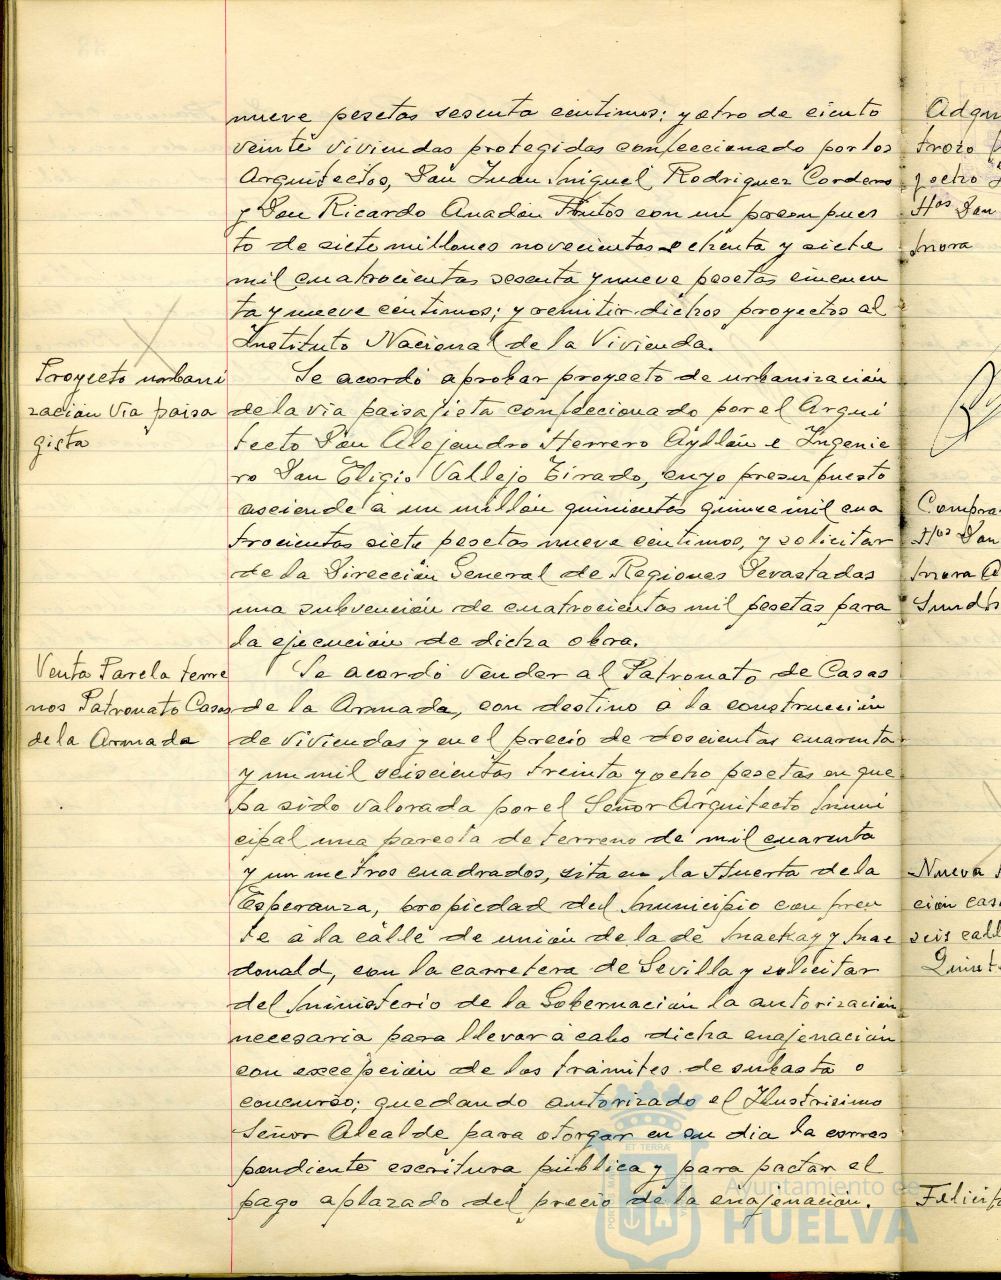 nueve pesetas sesenta centimos; y otro de ciento
veinte viviendas protegidas confeccionado por los
Arquitectos, Don Juan Miguel Rodriguez Cordero
y Don Ricardo Anadón Frutos con un presupues
to de siete millones novecientas ochenta y siete
mil cuatrocientas sesenta y nueve pesetas cincuen
ta y nueve céntimos; y remitir dichos proyectos al
Instituto Nacional de la Vivienda.
Proyecto urbani
zación Via paisa
gista
Se acordó aprobar proyecto de urbanización
de la via paisajista confeccionado por el Arqui
tecto Don Alejandro Herrero Ayllón e Ingenie
ro Don Eligio Vallejo Tirado, cuyo presupuesto
asciende a un millón quinientas quince mil cua
trocientas siete pesetas nueve centimos, y solicitar
de la Dirección General de Regiones Devastadas
una subvención de cuatrocientas mil pesetas para
la ejecución de dicha obra.
Venta Parcela terre
nos Patronato Casas
de la Armada
Se acordó vender al Patronato de Casas
de la Armada, con destino a la construcción
de viviendas y en el precio de doscientas cuarenta
y un mil seiscientas treinta y ocho pesetas en que
ha sido valorada por el Señor Arquitecto Muni
cipal una parcela de terreno de mil cuarenta
y un metros cuadrados, sita en la Huerta de la
Esperanza, propiedad del Municipio con fren
te a la calle de unión de la de Mackay y Mac
donald, con la carretera de Sevilla y solicitar
del Ministerio de la Gobernación la autorización
necesaria para llevar a cabo dicha enajenación
con excepción de los trámites de subasta o
concurso; quedando autorizado el Ilustrisimo
Señor Alcalde para otorgar en su dia la corres
pondiente escritura pública y para pactar el
pago aplazado del precio de la enajenación.
trozo
y ocho
Hos Don
Mora
Compra
Hos Don
Mora
Nueva
ción cas
seis call
Ayuntamiento de
HUELVA